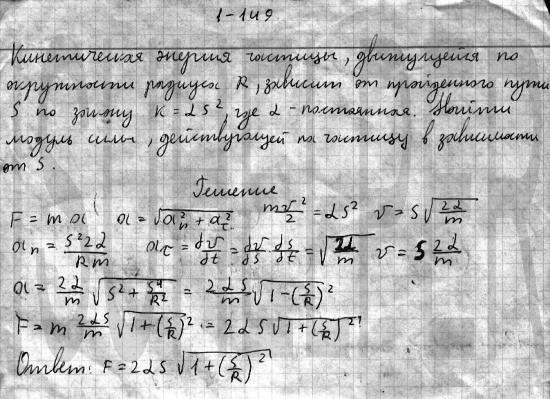 1-149
Кинетическая энергия частицы, движущейся по
окружности радиуса R, зависит от пройденного пути
S по закону K = αS², где α - постоянная. Найти
модуль силы, действующей на частицу в зависимости
от S.
Решение
F = ma a = √(aₙ² + a_τ²) mv²/2 = αS² v = S√(2α/m)
aₙ = S²2α/Rm a_τ = dv/dt = dv/dS dS/dt = √(2α/m) v = S 2α/m
a = 2α/m √(S² + S⁴/R²) = 2αS/m √(1-(S/R)²)
F = m 2αS/m √(1+(S/R)²) = 2αS√(1+(S/R)²)
Ответ: F = 2αS√(1+(S/R)²)